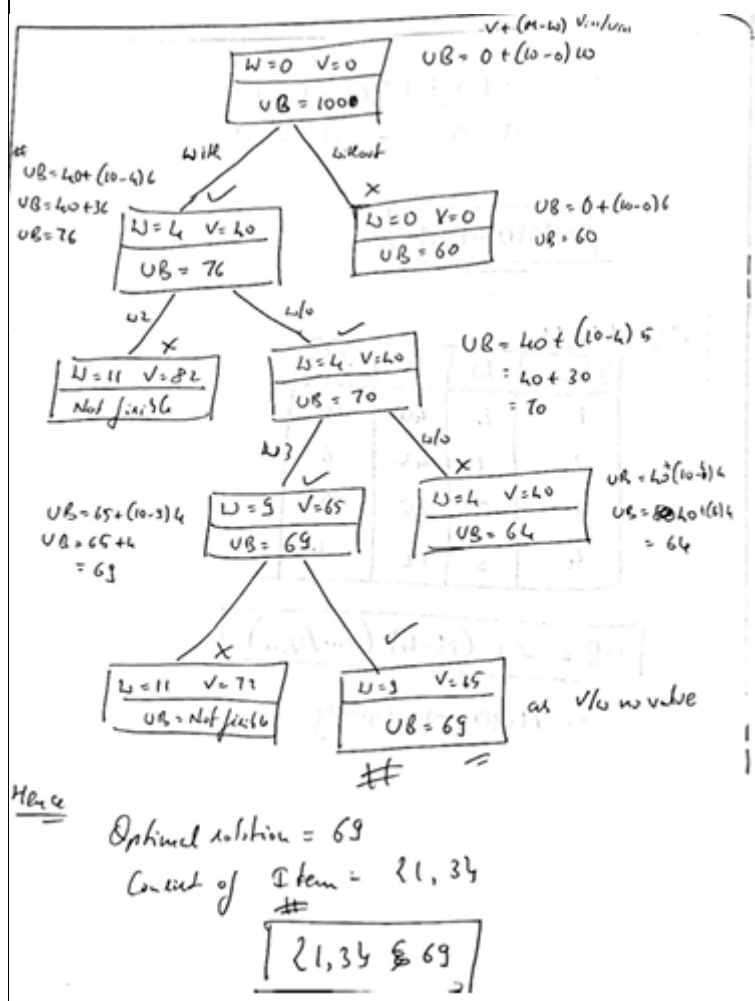 V + (M-W) Vi+1/Wi+1
UB = 0 + (10-0) 10
W=0 V=0
UB = 100
With
without
#
UB = 40 + (10-4) 6
UB = 40 + 36
UB = 76
✓
W=4 V=40
UB = 76
×
W=0 V=0
UB = 60
UB = 0 + (10-0) 6
UB = 60
w2
w/o
×
W=11 V=82
Not fisible
✓
W=4 V=40
UB = 70
UB = 40 + (10-4) 5
= 40 + 30
= 70
W3
w/o
UB = 65 + (10-9) 4
UB = 65 + 4
= 69
✓
W=9 V=65
UB = 69
×
W=4 V=40
UB = 64
UB = 40 + (10-4) 4
UB = 40 + (6) 4
= 64
×
W=11 V=72
UB = Not fisible
✓
W=9 V=65
UB = 69
as V/w no value
#
Hence
Optimal solution = 69
Consist of Item = {1,3}
#
{1,3} & 69